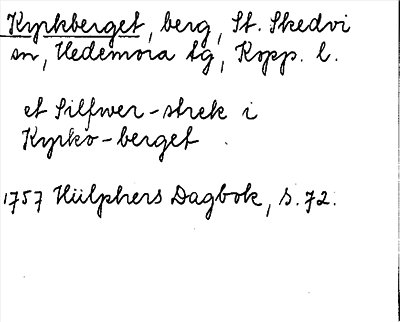 Kyrkberget, berg, St. Skedvi
sn, Hedemora tg, Kopp. l.
et Silfwer-strek i
Kyrko-berget.
1757 Hülphers Dagbok, s. 72.